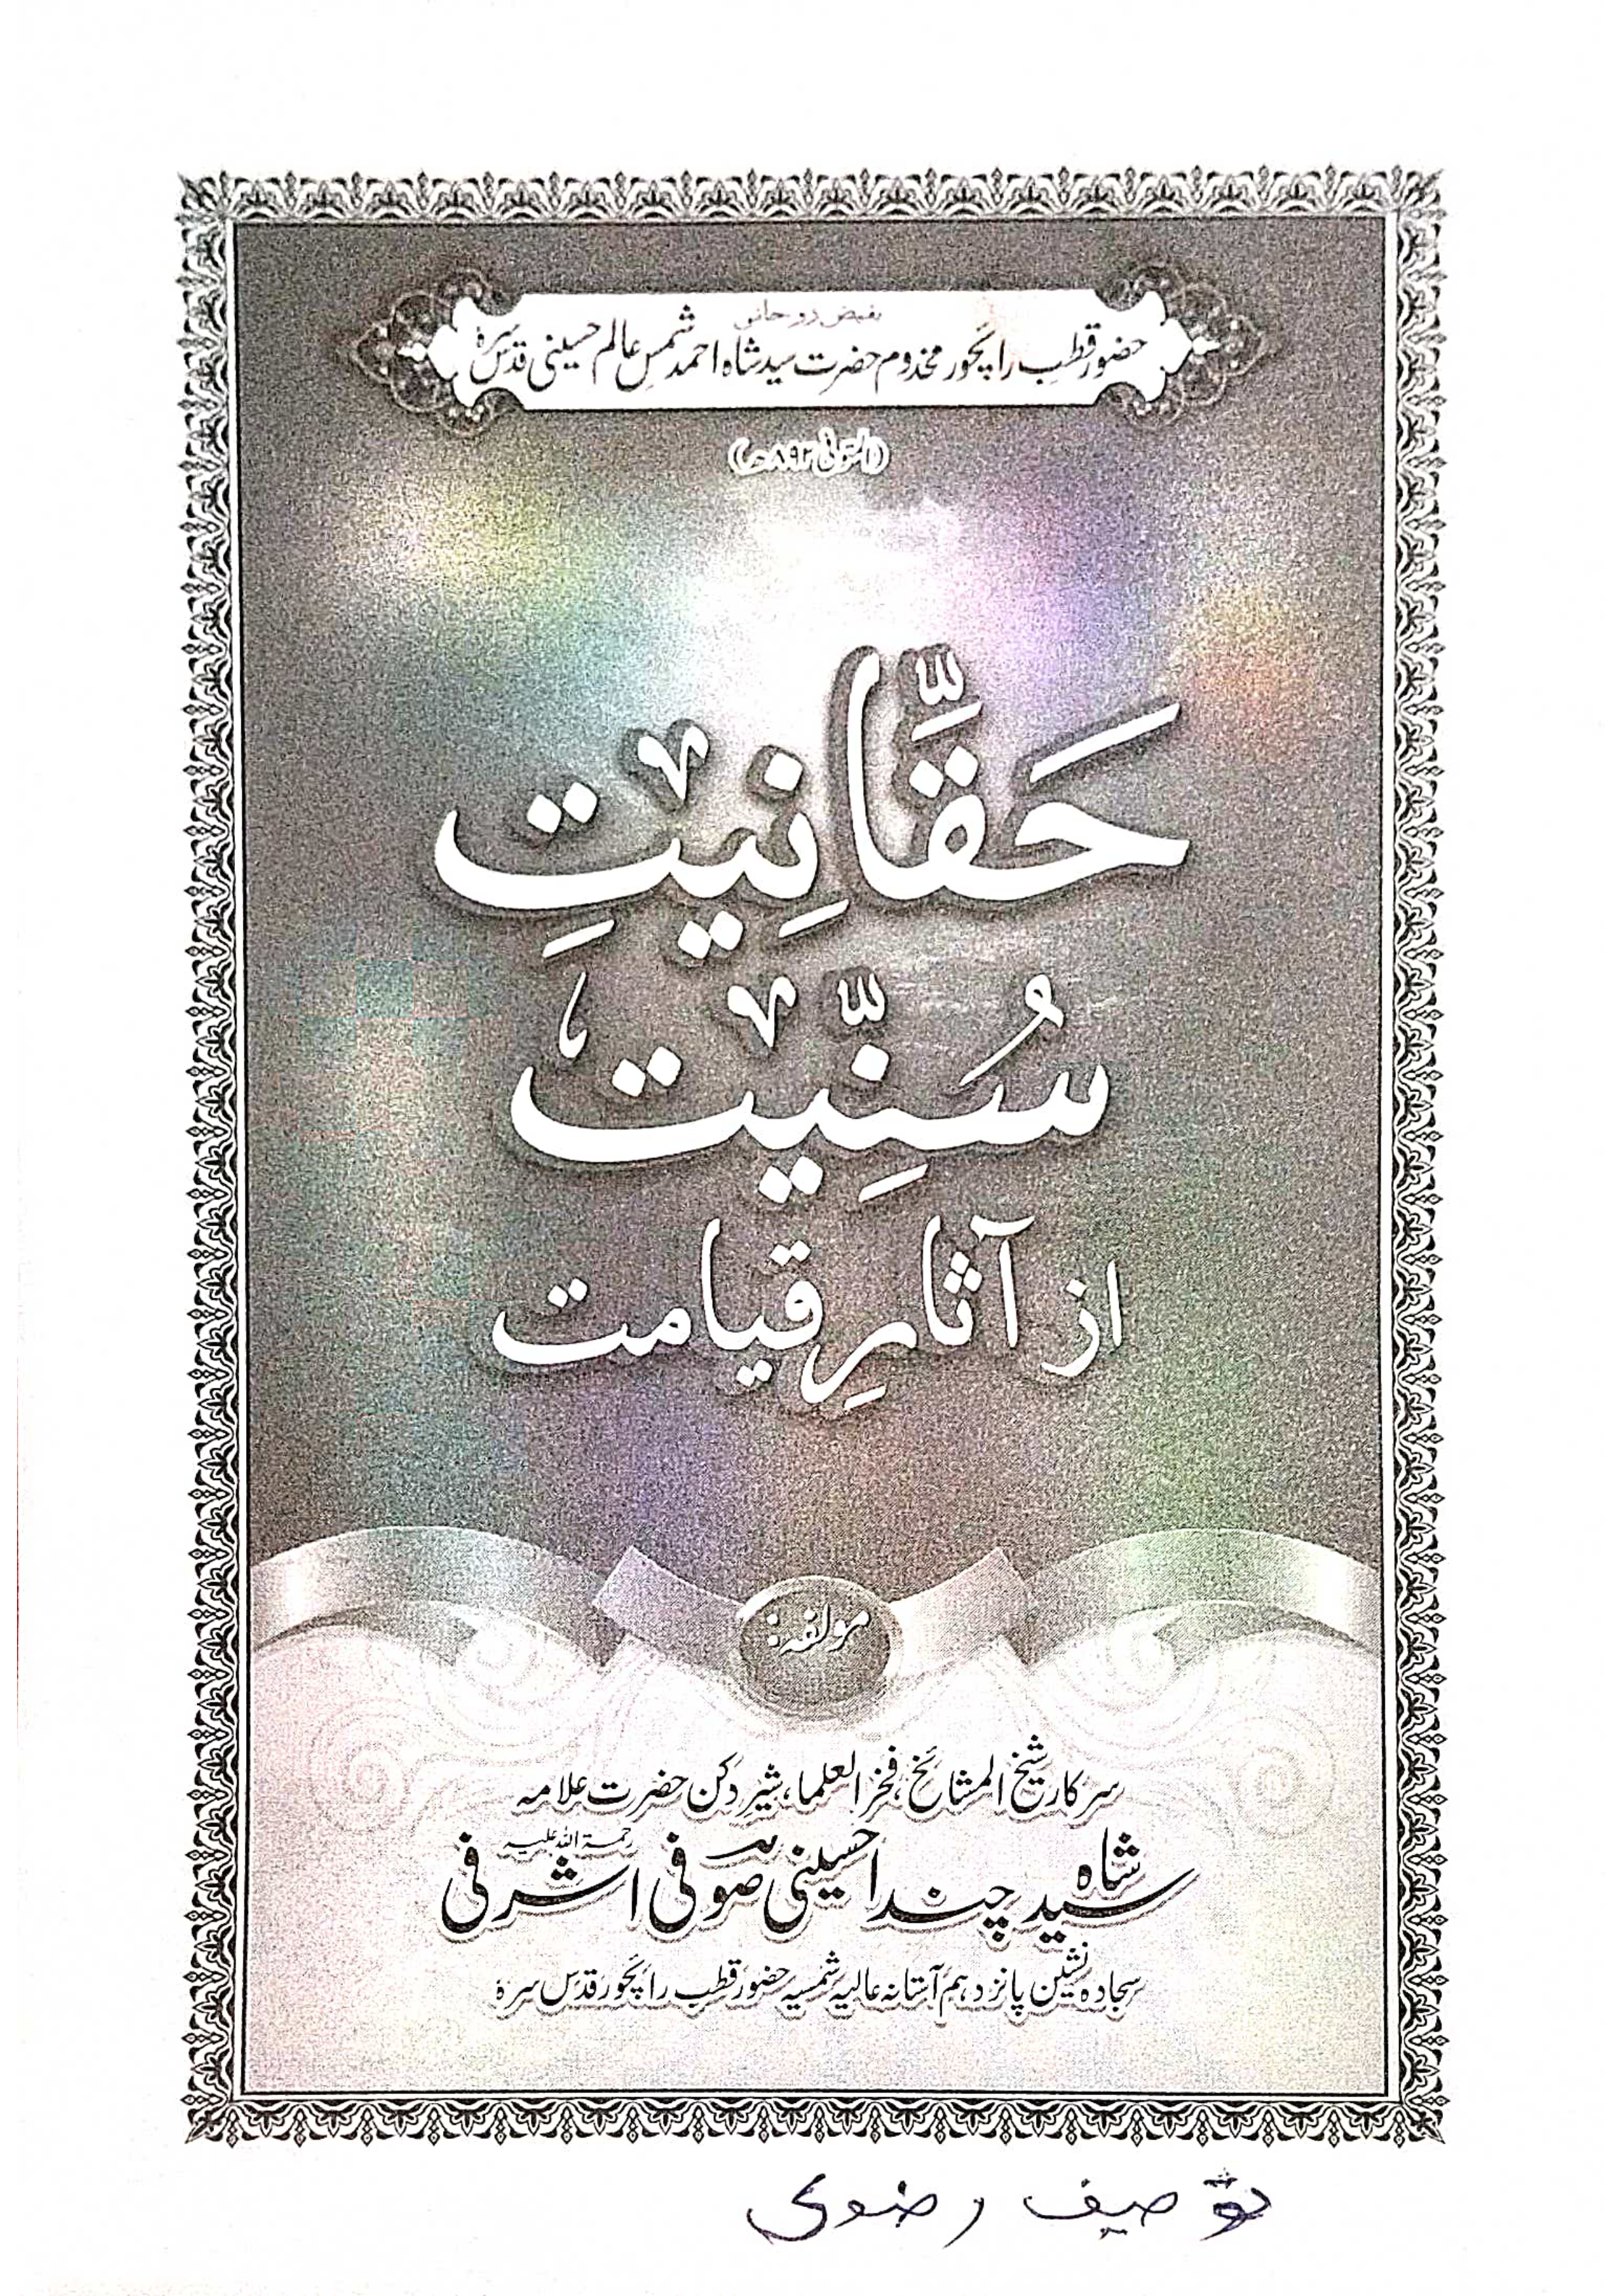 بفیض روحانی
حضور قطبِ رائچور مخدوم حضرت سید شاہ احمد شمسِ عالم حسینی قدس سرہٗ
(المتوفیٰ ۸۹۲ھ)
حَقَّانِیَتِ
سُنِّیَت
از آثارِ قیامت
مولفہ:
سرکار شیخ المشائخ، فخر العلما، شیرِ دکن حضرت علامہ
سید شاہ چندا حسینی صوفی اشرفی رحمۃ اللہ علیہ
سجادہ نشین پانزدہم آستانہ عالیہ شمسیہ حضور قطب رائچور قدس سرہٗ
توصیف رضوی